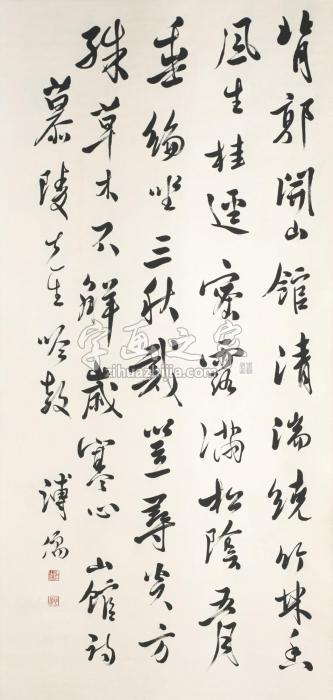 背郭開山館清湍繞竹林香
風生桂逕寒露滿松陰五月
垂綸坐三秋戴笠尋炎方
殊草木不解歲寒心 山館詩
慕陵先生吟教 溥儒
字画之家
zihuazhijia.com